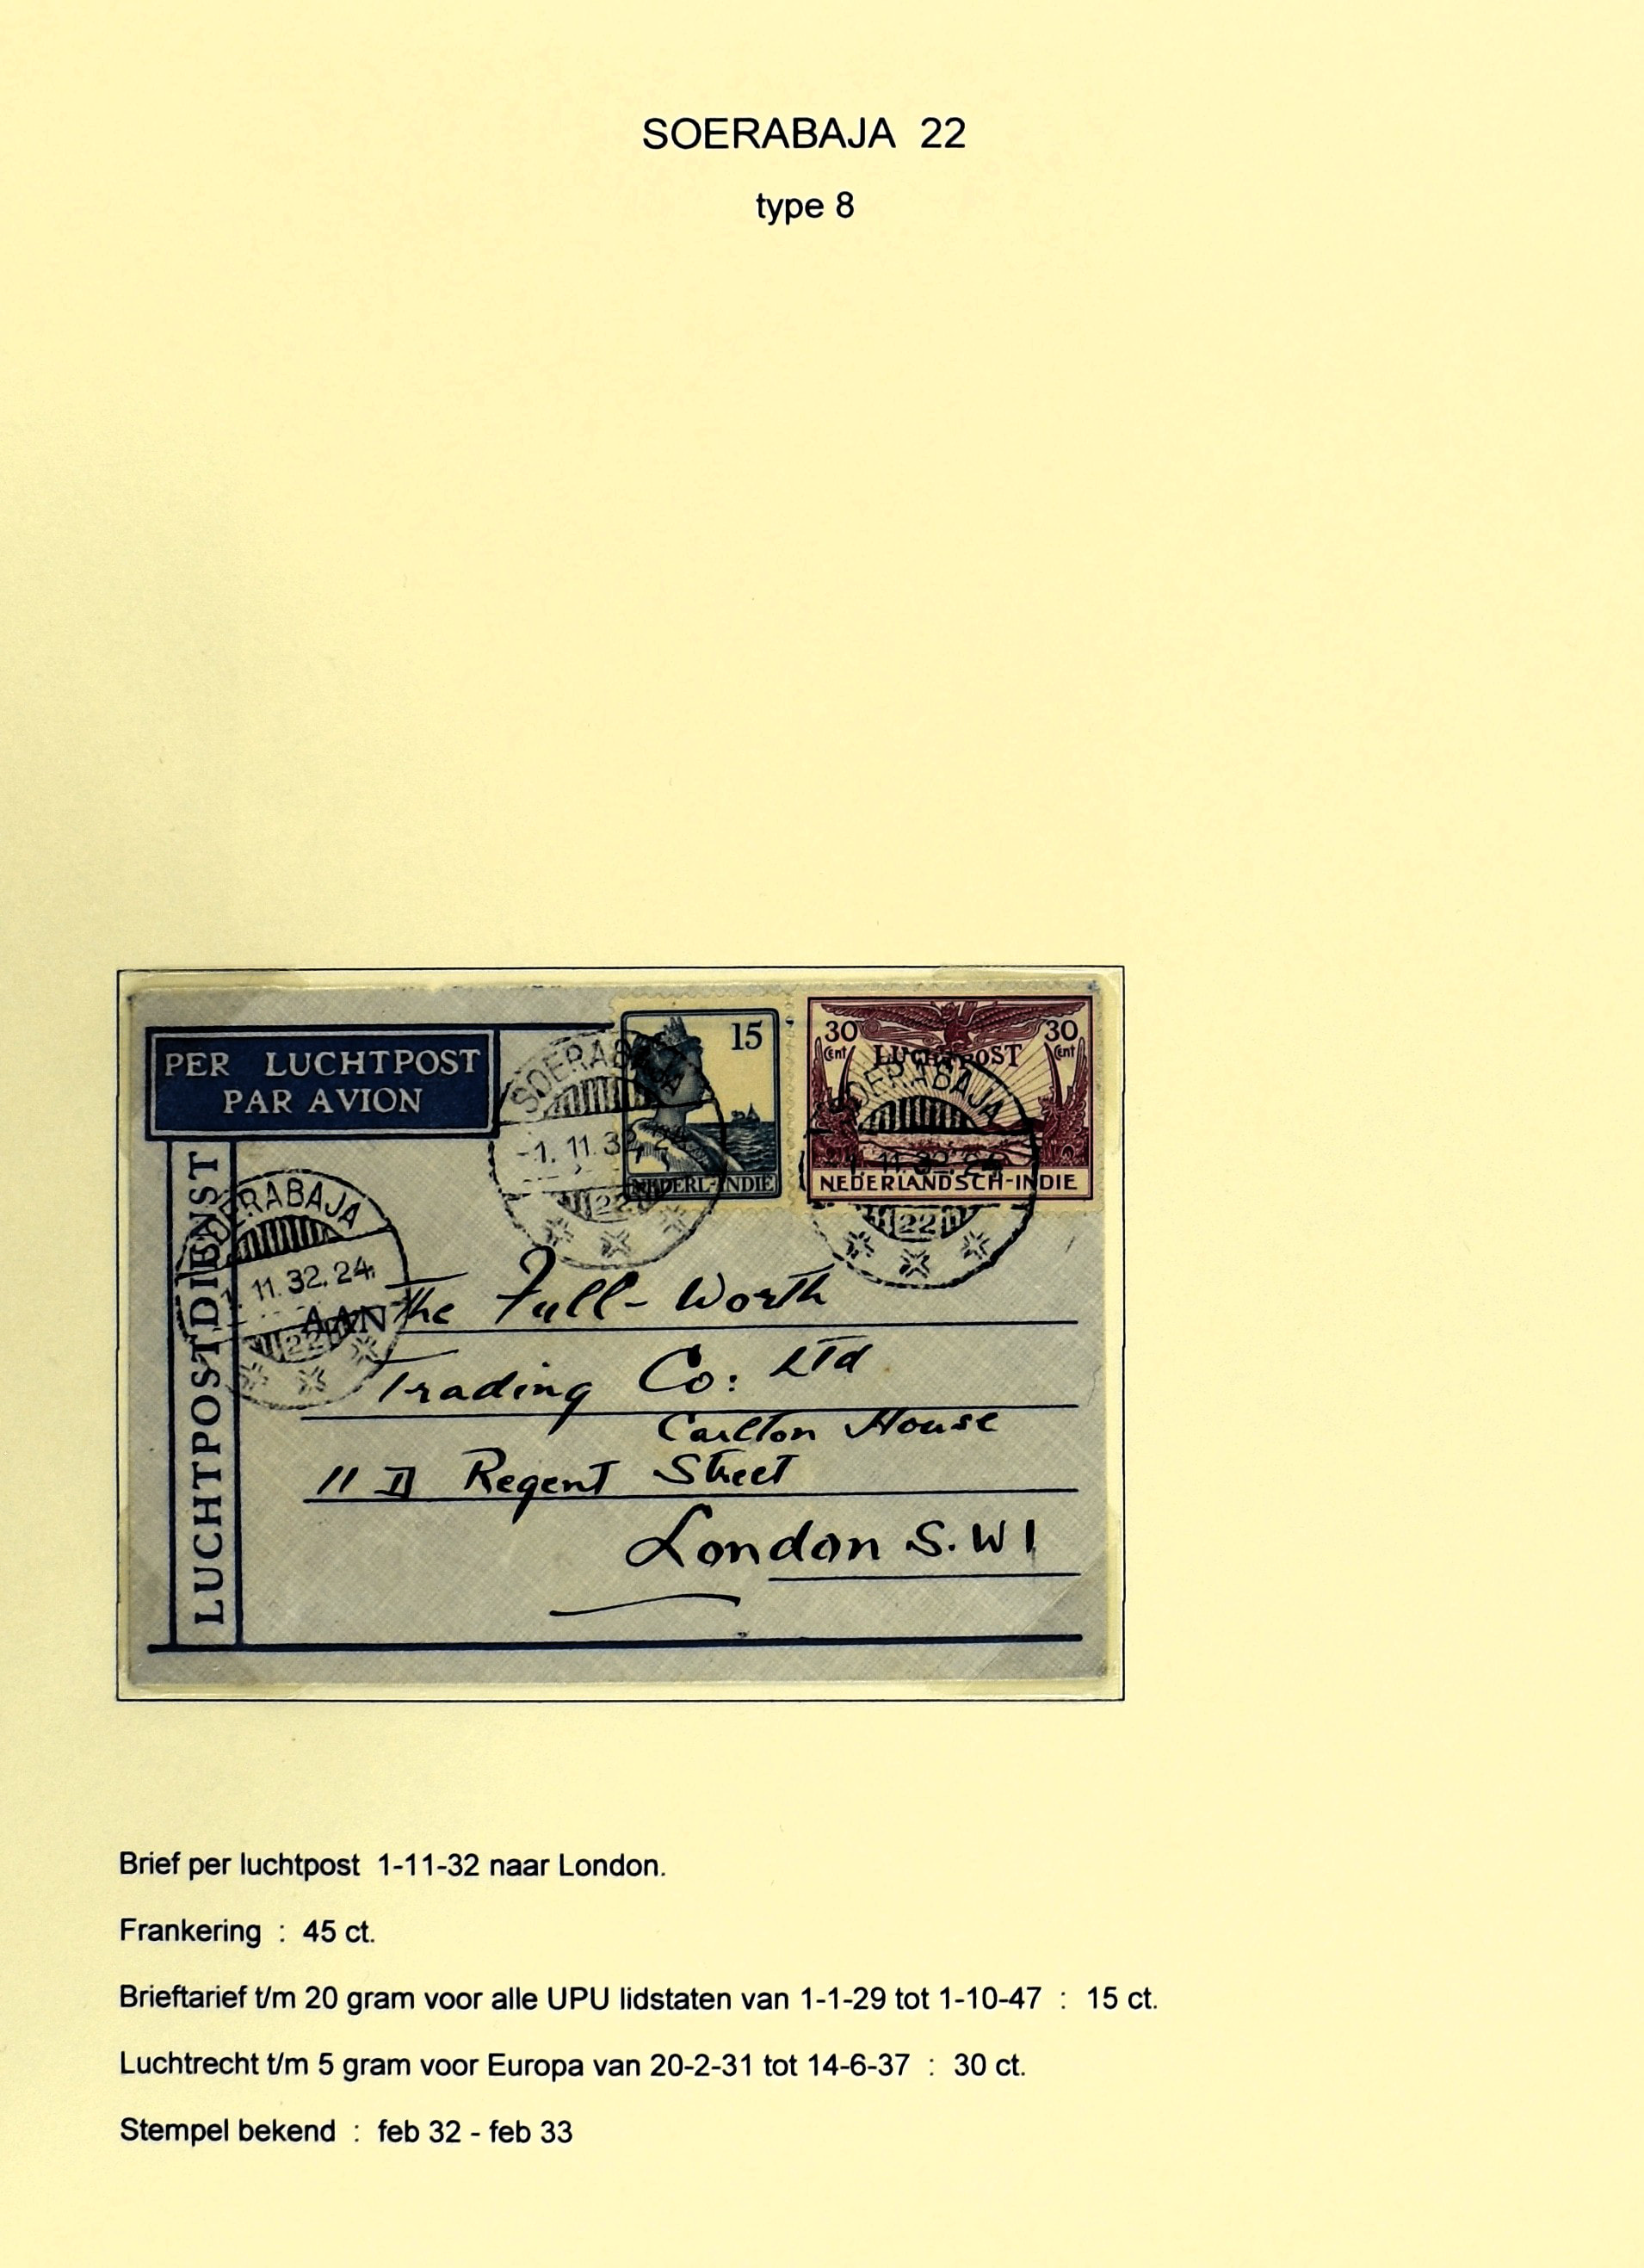 SOERABAJA 22
type 8
PER LUCHTPOST
PAR AVION
LUCHTPOSTDIENST
SOERABAJA
-1.11.32.24
22
15
NEDERL-INDIE
30 Cent
30 Cent
LUCHTPOST
NEDERLANDSCH-INDIE
SOERABAJA
1.11.32.24
22
SOERABAJA
11.32.24
22
AAN
The Full-Worth
Trading Co: Ltd
Carlton House
11 Regent Street
London S.W1
Brief per luchtpost 1-11-32 naar London.
Frankering : 45 ct.
Brieftarief t/m 20 gram voor alle UPU lidstaten van 1-1-29 tot 1-10-47 : 15 ct.
Luchtrecht t/m 5 gram voor Europa van 20-2-31 tot 14-6-37 : 30 ct.
Stempel bekend : feb 32 - feb 33